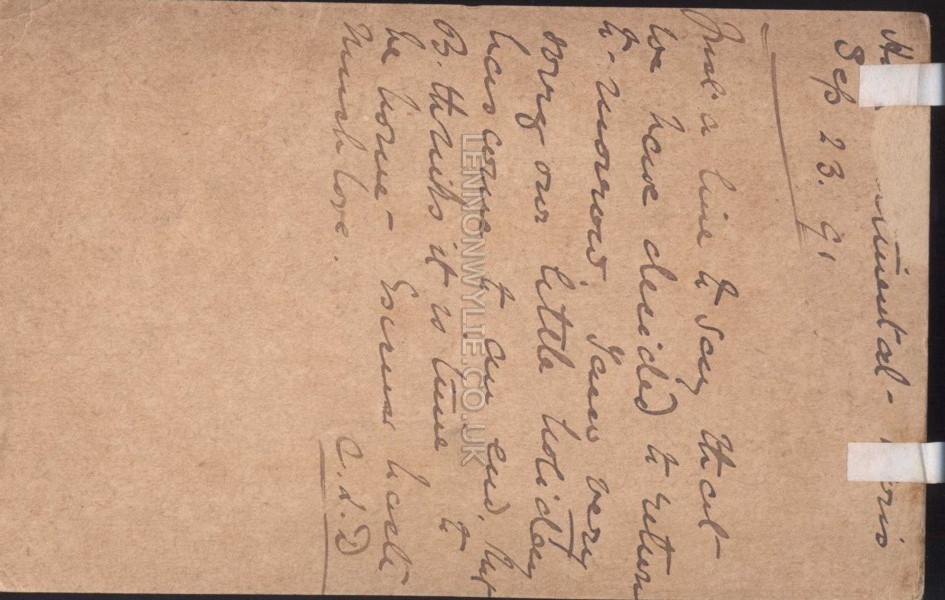 Sep 23. 91
Just a line to say that
we have decided to return
to-morrow I am very
sorry our little holiday
has come to an end, but
B. thinks it is time to
be home - In haste
Much love.
C.L.D
LENNONWYLIE.CO.UK